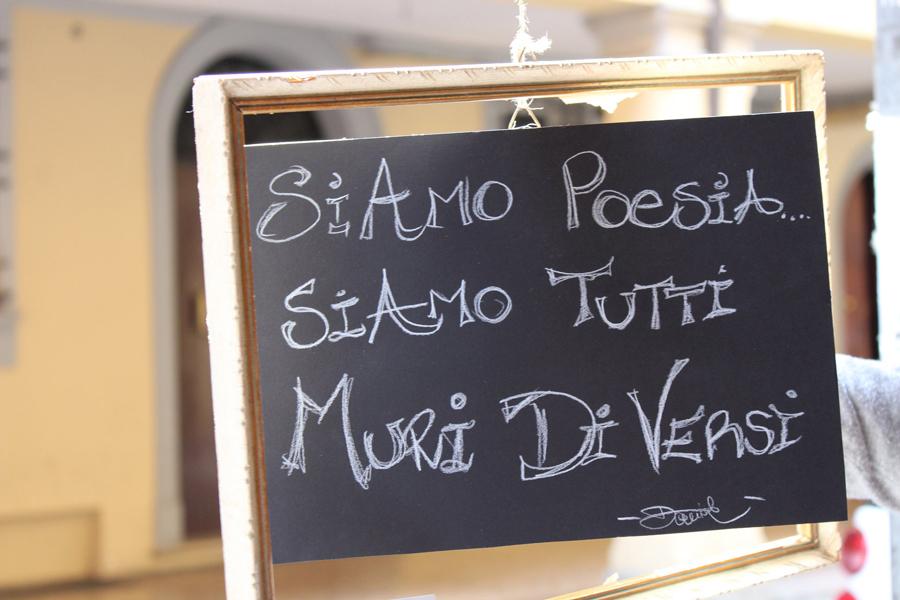 SiAMO POESIA...
SiAMO TUTTI
MURI Di VERSi